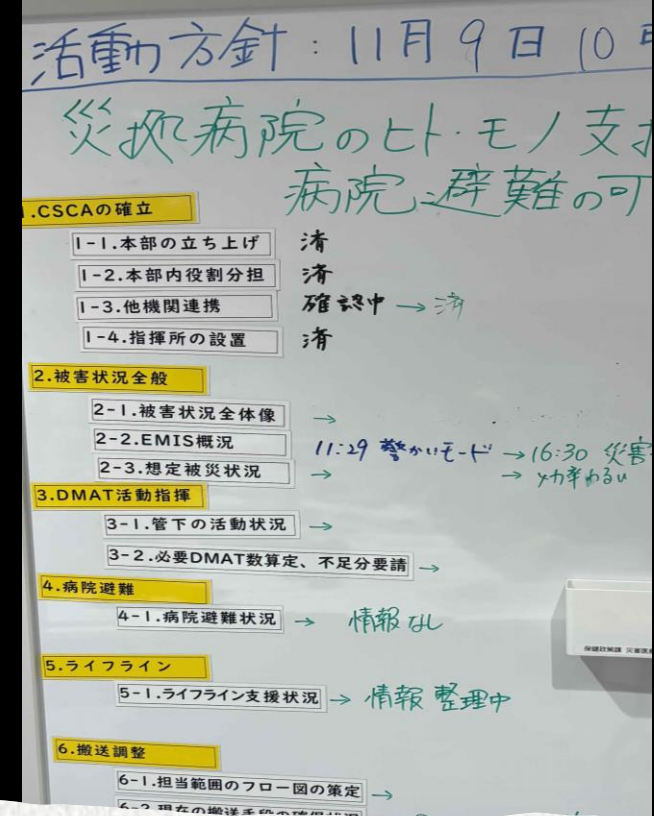 活動方針：11月9日10時
災拠病院のヒト・モノ支
病院避難の可
1.CSCAの確立
1-1.本部の立ち上げ 済
1-2.本部内役割分担 済
1-3.他機関連携 確認中 → 済
1-4.指揮所の設置 済
2.被害状況全般
2-1.被害状況全体像 →
2-2.EMIS概況 11:29 警かいモード → 16:30 災害
2-3.想定被災状況 → → 効率わるい
3.DMAT活動指揮
3-1.管下の活動状況 →
3-2.必要DMAT数算定、不足分要請 →
4.病院避難
4-1.病院避難状況 → 情報なし
5.ライフライン
5-1.ライフライン支援状況 → 情報整理中
6.搬送調整
6-1.担当範囲のフロー図の策定 →
6-2.現在の搬送手段の確保状況